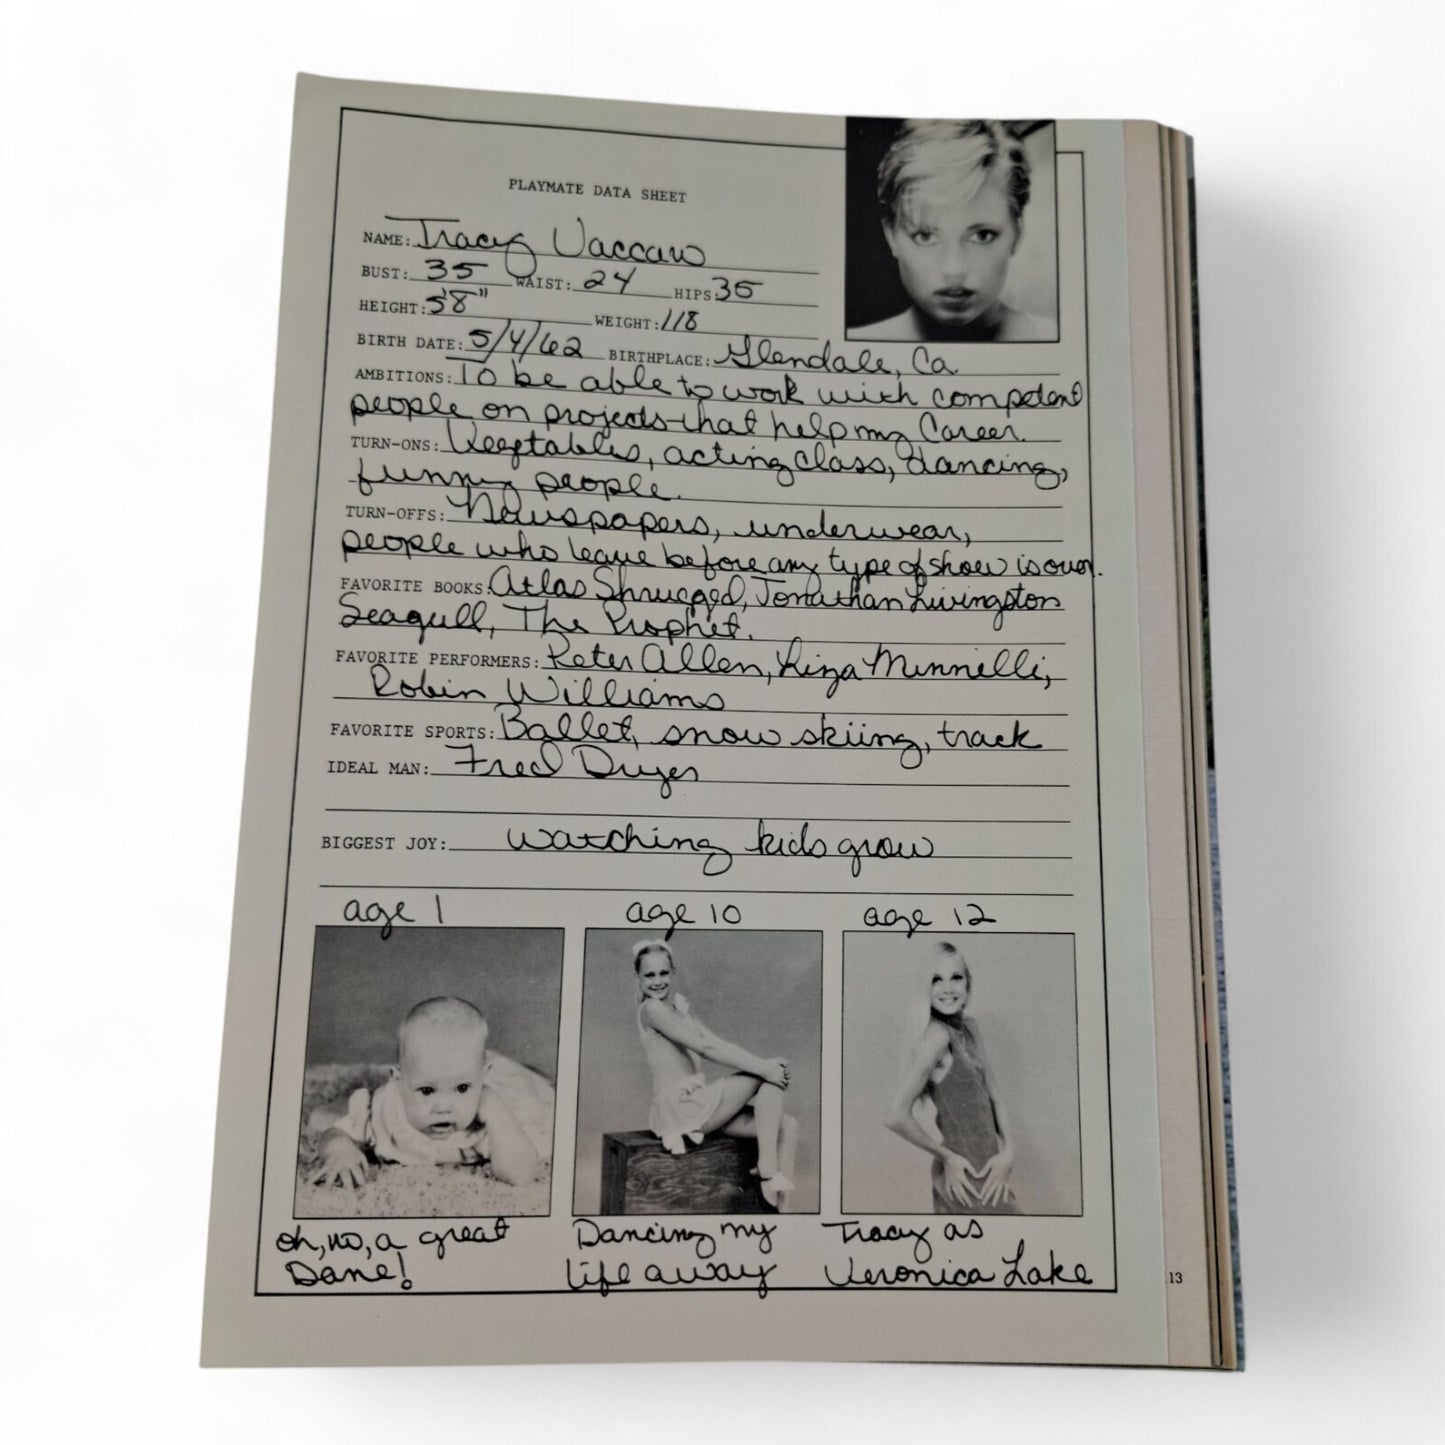 PLAYMATE DATA SHEET
NAME: Tracy Vaccaro
BUST: 35 WAIST: 24 HIPS: 35
HEIGHT: 5'8" WEIGHT: 118
BIRTH DATE: 5/4/62 BIRTHPLACE: Glendale, Ca
AMBITIONS: To be able to work with competent
people on projects that help my Career.
TURN-ONS: Vegetables, acting class, dancing,
funny people.
TURN-OFFS: Newspapers, underwear,
people who leave before any type of show is over.
FAVORITE BOOKS: Atlas Shrugged, Jonathan Livingston
Seagull, The Prophet.
FAVORITE PERFORMERS: Peter Allen, Liza Minnelli,
Robin Williams
FAVORITE SPORTS: Ballet, snow skiing, track
IDEAL MAN: Fred Dryer
BIGGEST JOY: watching kids grow
age 1 age 10 age 12
oh, no, a great Dancing my Tracy as
Dane! life away Veronica Lake
13